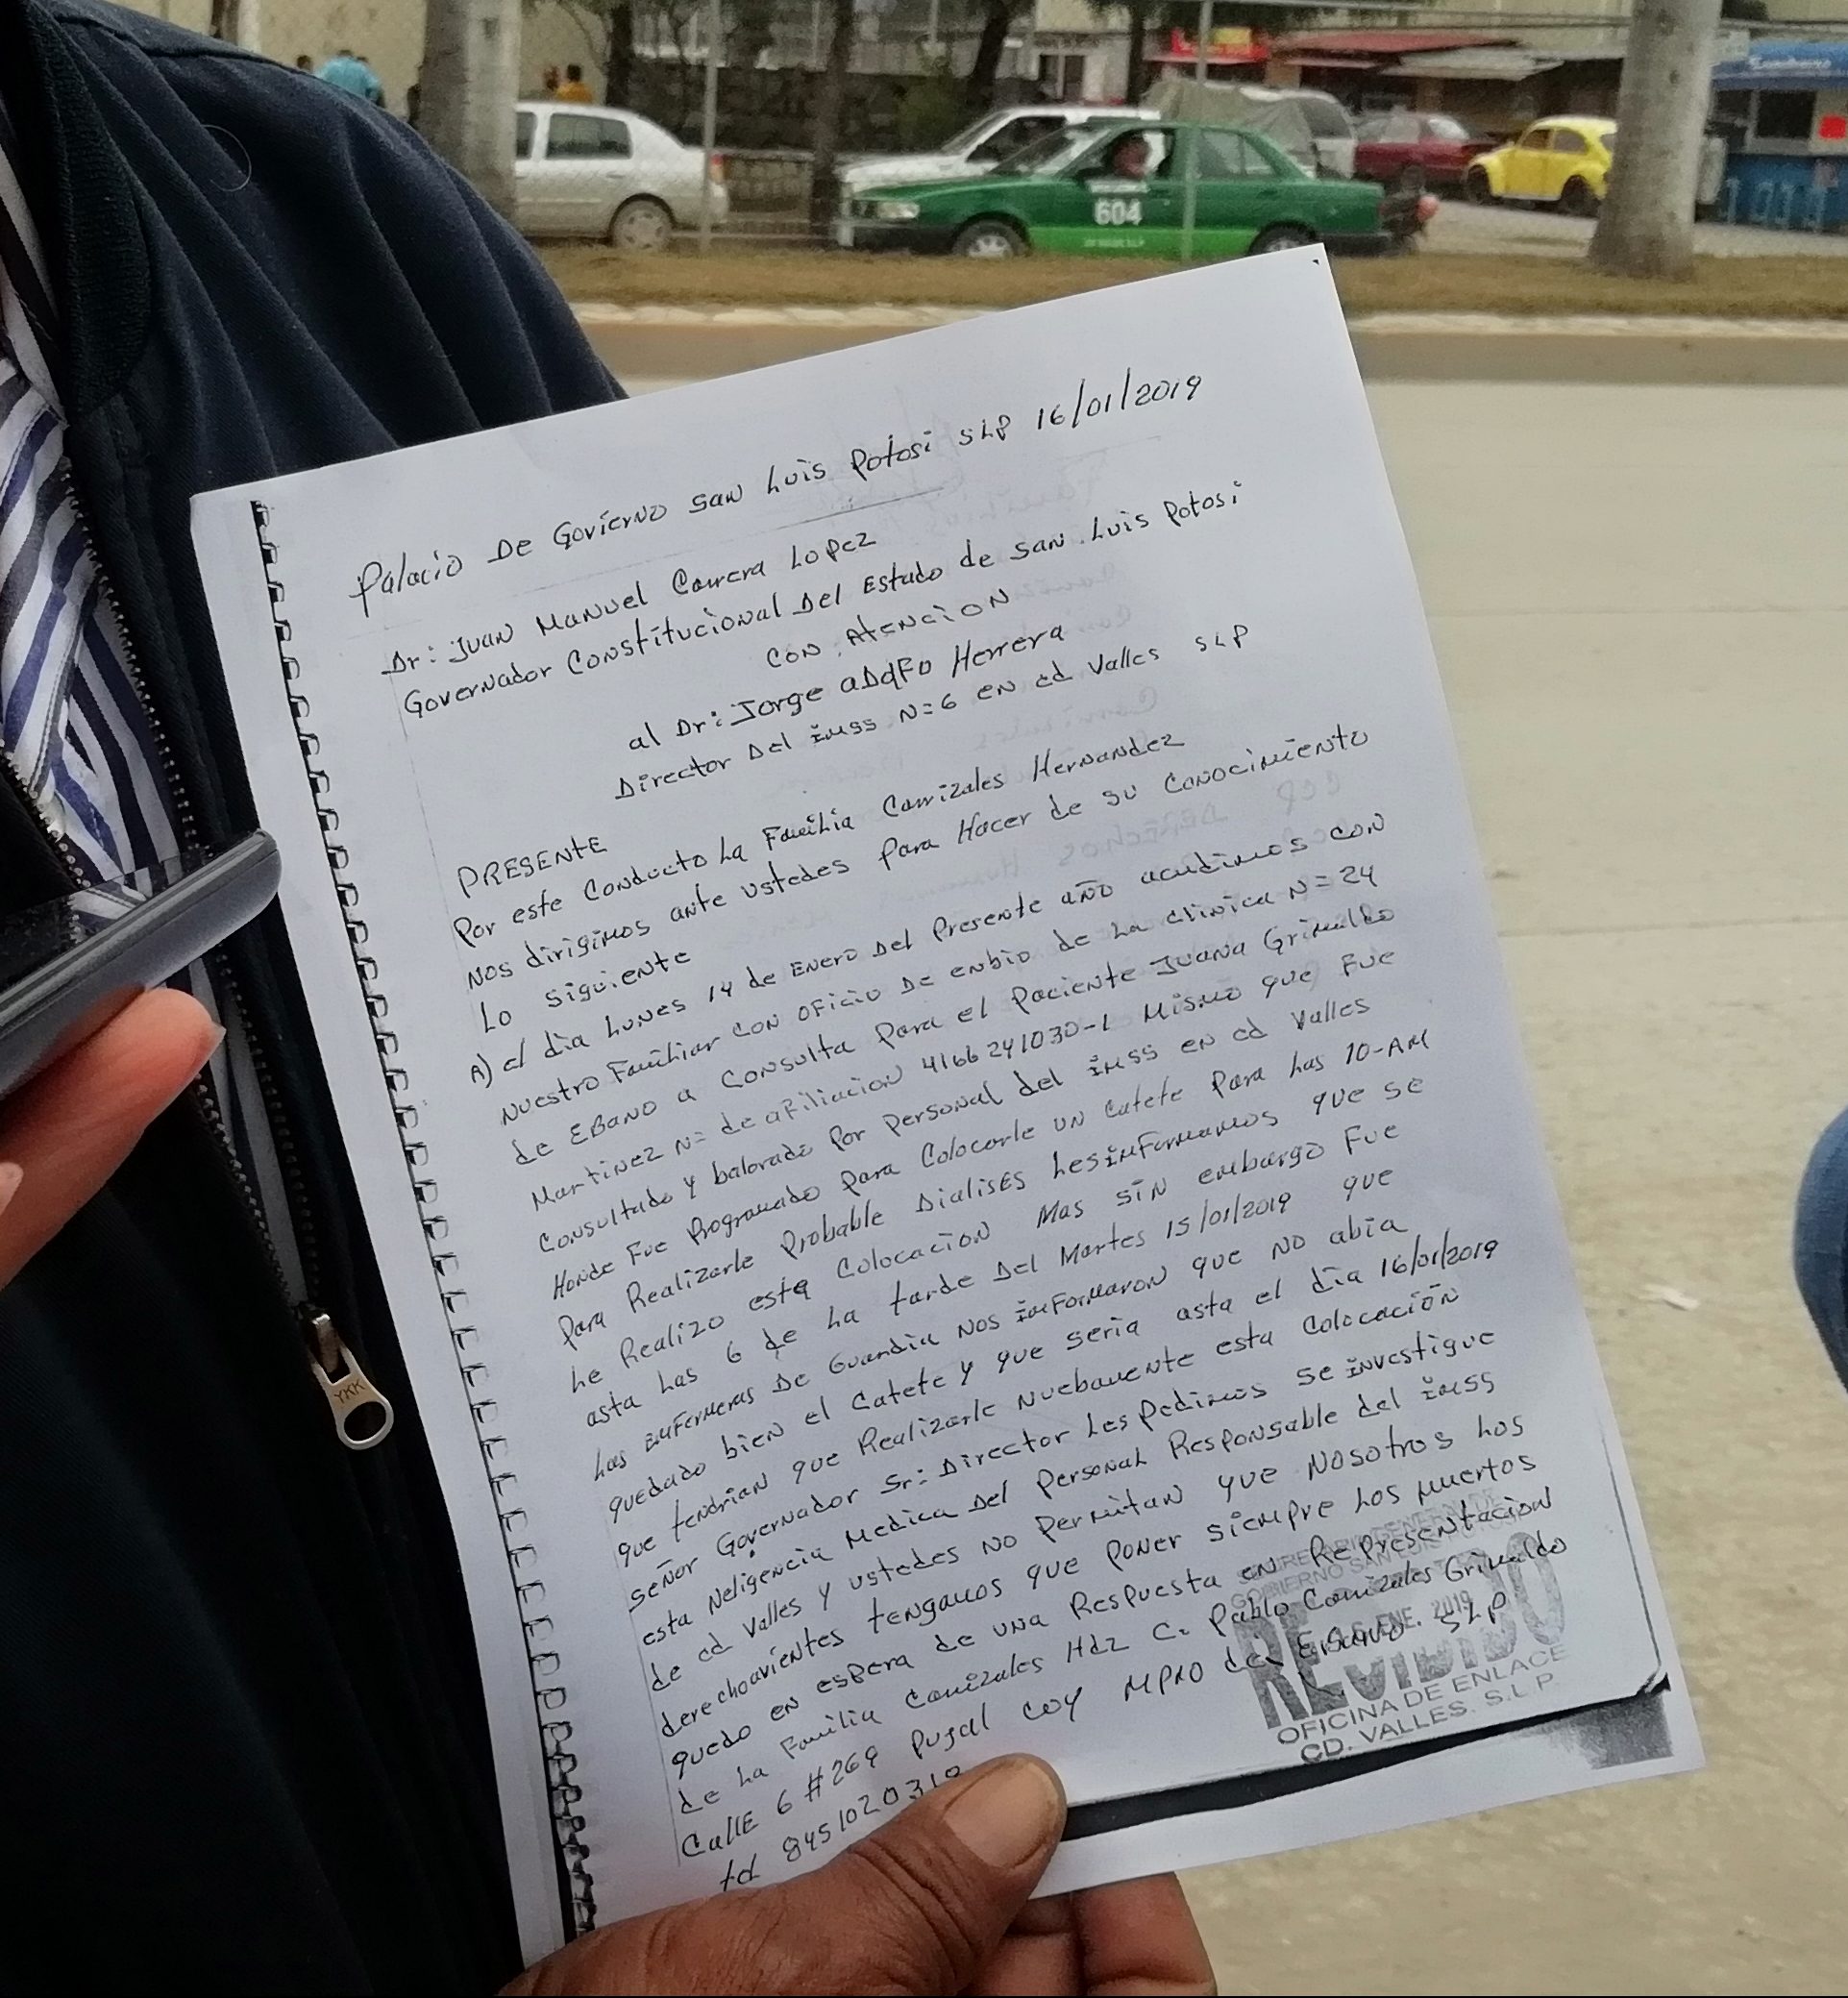 Palacio De Govierno San Luis Potosi SLP 16/01/2019
Dr: Juan Manuel Carrera Lopez
Governador Constitucional Del Estado de San Luis Potosi
CON AtENCiON
al Dr: Jorge aDolFo Herrera
Director Del imss N=6 EN cd Valles SLP
PRESENtE
Por este Conducto La Familia Carrizales Hernandez
Nos dirigimos ante ustedes para Hacer de su Conocimiento
Lo siguiente
A) el dia Lunes 14 de Enero Del Presente año acudimos CON
Nuestro Familiar CON oFicio De enbio de La clinica N=24
de EBaNO a Consulta Para el Paciente Juana Grimaldo
Martinez N= de aFiliacion 4166241030-1 Mismo que Fue
Consultado y balorado Por Personal del imss en cd Valles
Honde Fue Programado para Colocarle un Catete para Las 10-AM
para Realizarle Probable Dialises Les informamos que se
Le Realizo esta Colocacion Mas sin embargo Fue
asta Las 6 de La tarde Del Martes 15/01/2019 que
Las enFermeras De Guardia Nos inFormaron que No abia
quedado bien el Catete y que seria asta el dia 16/01/2019
que tendrian que Realizarle Nuebamente esta Colocación
señor Governador Sr: Director Les Pedimos se investigue
esta Neligencia Medica Del Personal Responsable del imss
de cd Valles y ustedes No Permitan que Nosotros Los
derechoavientes tengamos que poner siempre Los muertos
quedo en espera de una Respuesta en Representacion
de La Familia Carrizales Hdz C. Pablo Carrizales Grimaldo
Calle 6 #269 Pujal coy MPNO de EBANO SLP
tel 8451020319
SECRETARIA GENERAL DE
GOBIERNO SAN LUIS
RECIBIDO
ENE. 2019
OFICINA DE ENLACE
CD. VALLES. S.L.P.
604
YKK